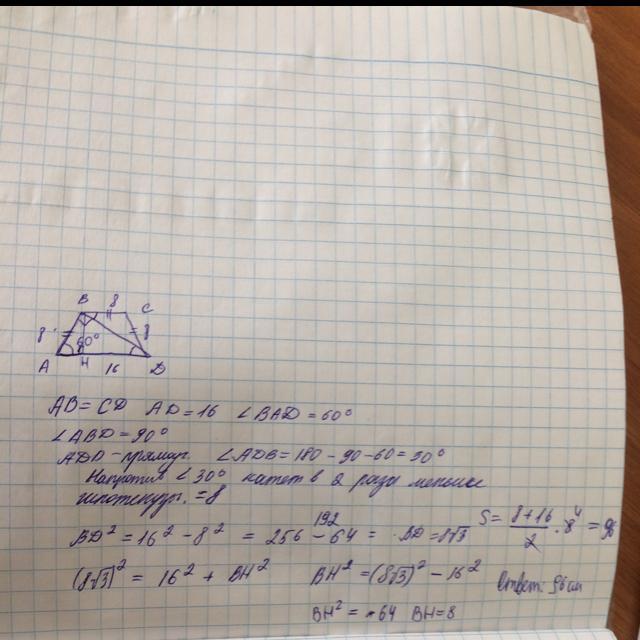 B 8 C
8 60° 8
A H 16 D
AB = CD AD = 16 ∠BAD = 60°
∠ABD = 90°
ADD - прямоуг. ∠ADB = 180 - 90 - 60 = 30°
Напротив ∠30° катет в 2 раза меньше
гипотенузы. = 8
BD² = 16² - 8² = 256 - 64 = 192 BD = 8√3
S = (8+16)/2 · 8 4 = 96
(8√3)² = 16² + BH² BH² = (8√3)² - 16²
Ответ: 96 см
BH² = -64 BH = 8